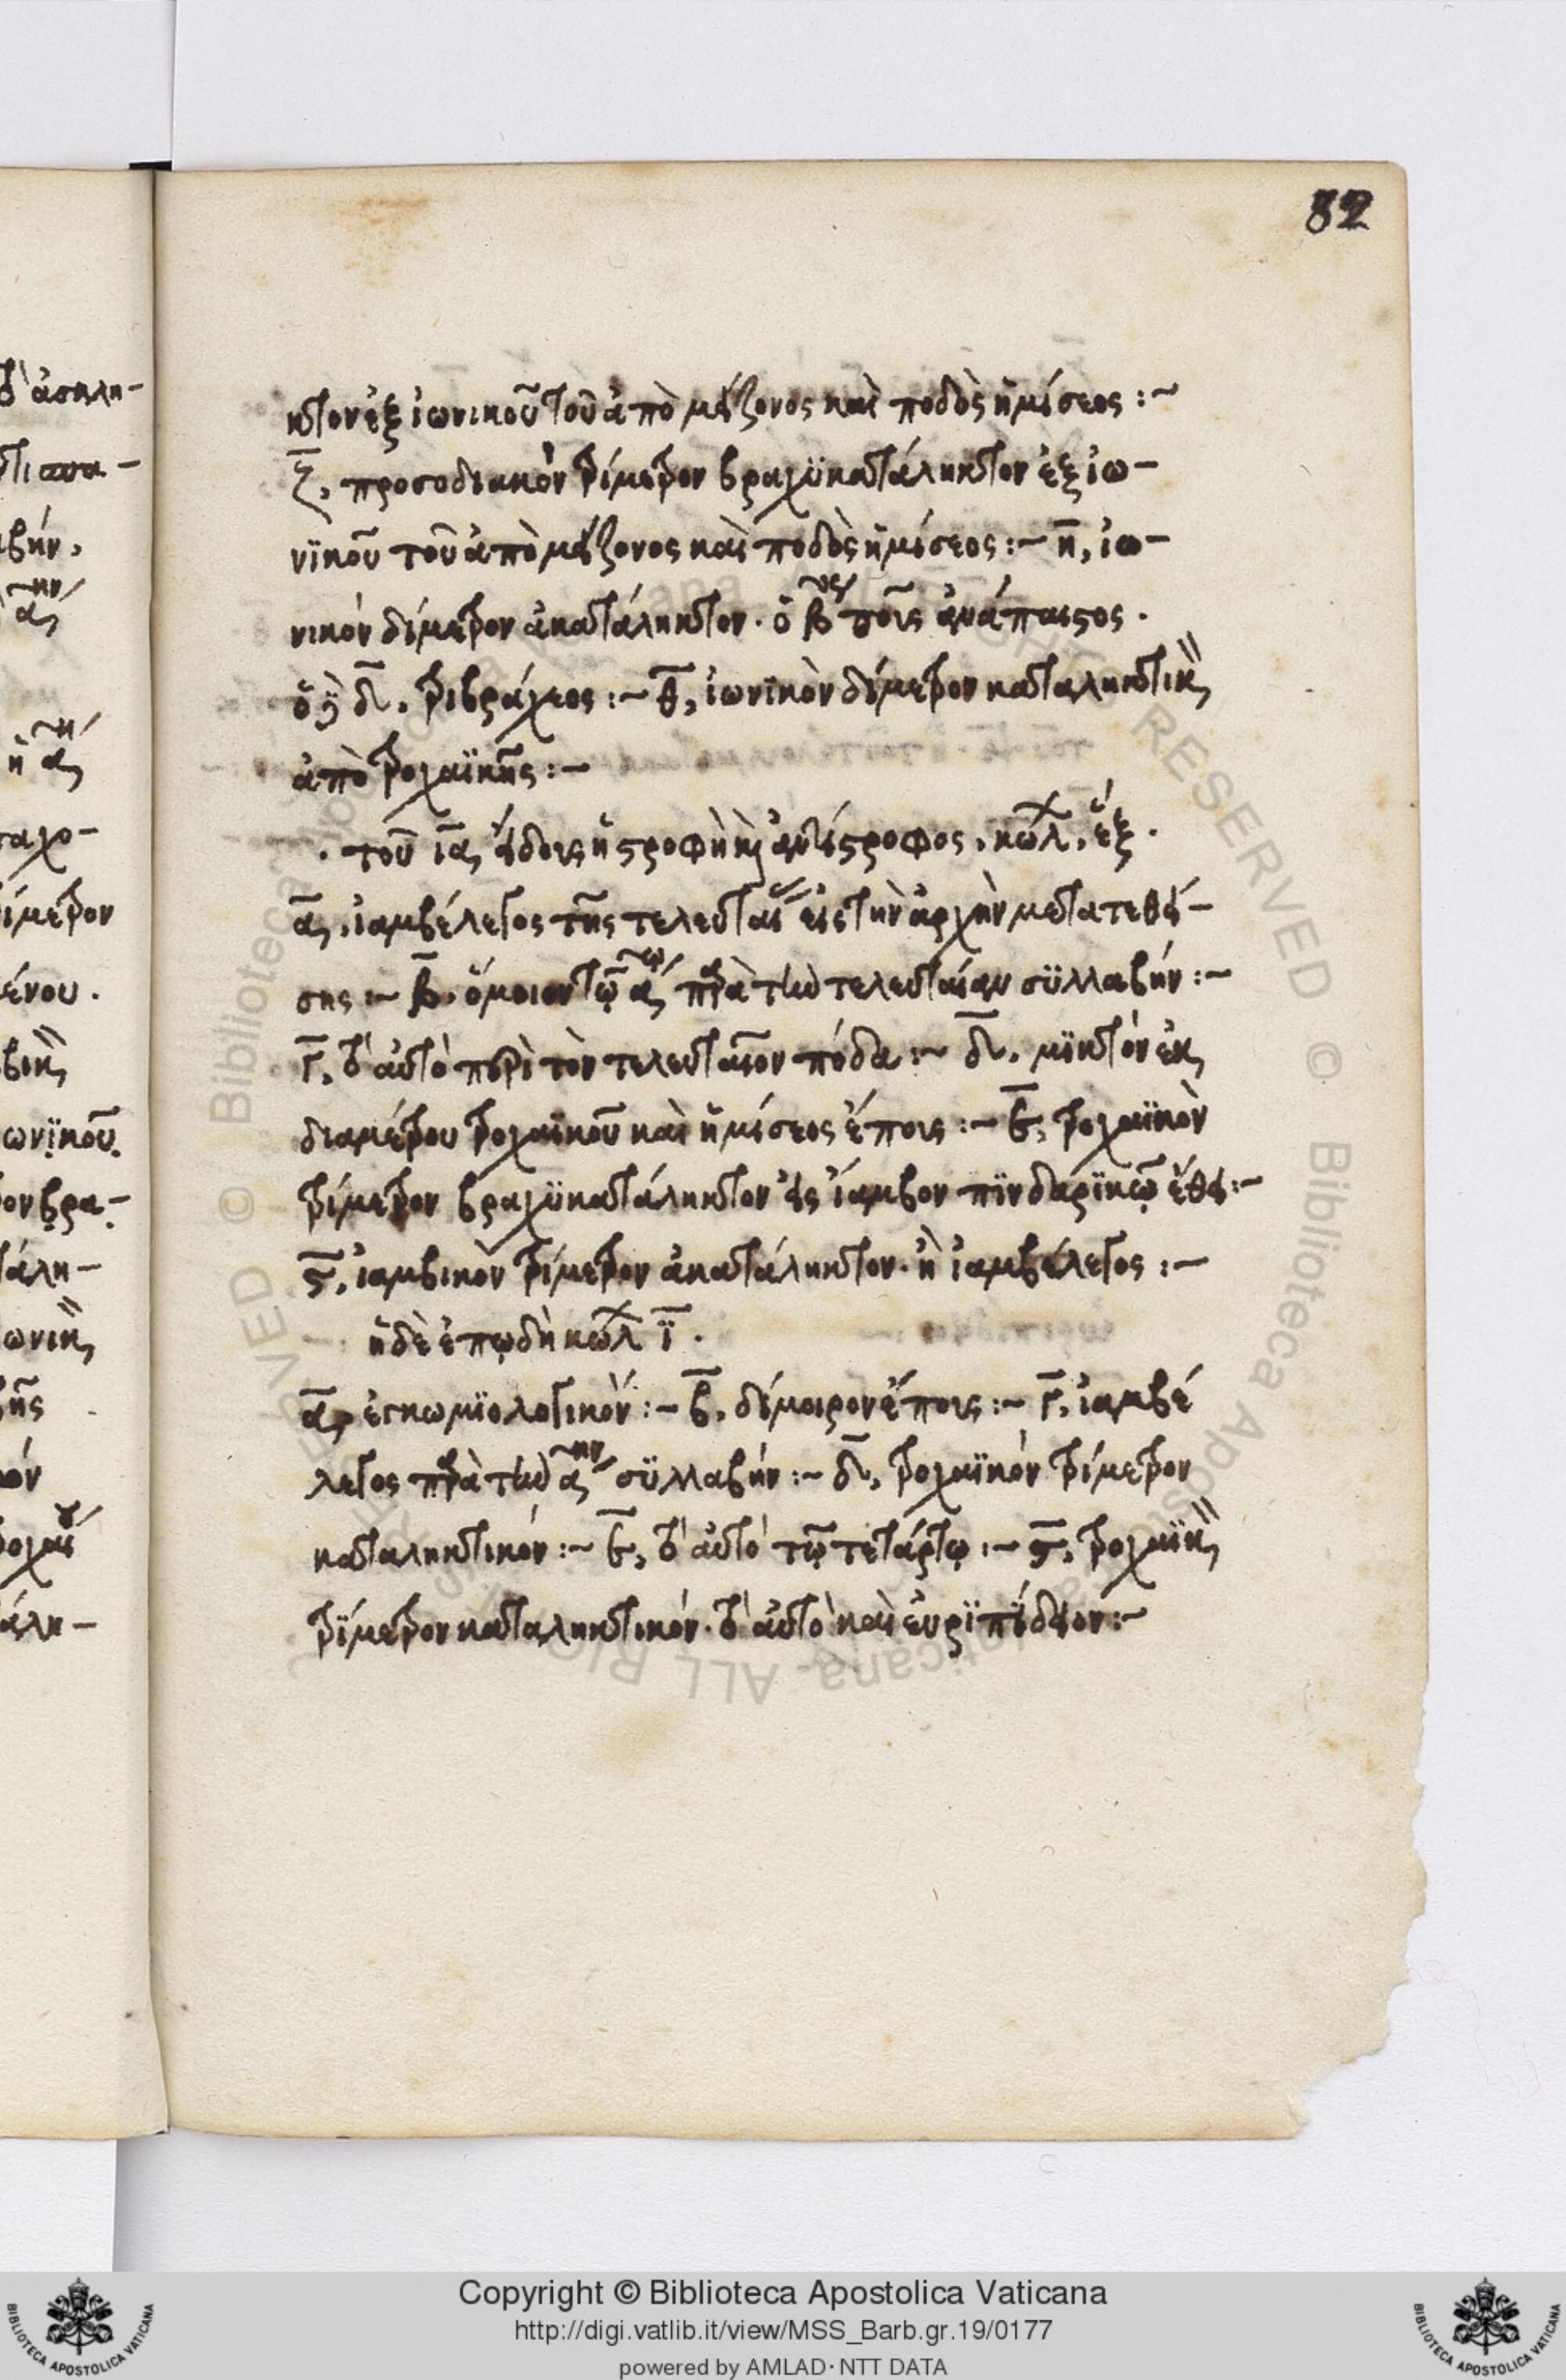 82
κτον ἐξ ἰωνικοῦ τοῦ ἀπὸ μείζονος καὶ ποδὸς ἡμίσεος :~
ζ̄, προσοδιακὸν τρίμετρον βραχϋκατάληκτον ἐξ ἰω-
νϊκοῦ τοῦ ἀπὸ μείζονος καὶ ποδὸς ἡμίσεος :~ η̄, ἰω-
νικὸν δίμετρον ἀκατάληκτον. ὁ β̄ πους ἀνάπαιστος.
ὁ δ̄. τριβράχεος :~ θ̄, ἰωνϊκὸν δίμετρον καταληκτικ
ἀπὸ τροχαϊκῆς :~
. τοῦ ῑᾱ εἴδους ἡ στροφὴ κὶ ἀντίστροφος, κώλ, ἕξ.
ᾱ, ἰαμβέλεγος τῆς τελευταί εἰς τὴν ἀρχὴν μετατεθεί-
σης :~ β̄. ὅμοιον τῷ ᾱω παρὰ τὴν τελευταίαν σϋλλαβήν :~
γ̄, τὸ αὐτὸ περὶ τὸν τελευταῖον πόδα :~ δ̄. μϊκτὸν ἐκ
διμέτρου τροχαϊκοῦ καὶ ἡμίσεος ἔπους :~ ε̄, τροχαϊκὸν
τρίμετρον βραχϋκατάληκτον εἰς ἴαμβον πϊνδαρϊκῷ ἔθει :~
ς̄, ἰαμβικὸν τρίμετρον ἀκατάληκτον. ἢ ἰαμβέλεγος :~
ἡ δὲ ἐπῳδὴ κώλ ῑ.
ᾱ, ἐγκωμϊολογικὸν :~ β̄, δίμοιρον ἔπους :~ γ̄, ἰαμβέ
λεγος παρὰ τὴν ᾱην σϋλλαβήν :~ δ̄, τροχαϊκὸν τρίμετρον
καταληκτικόν :~ ε̄, τὸ αὐτὸ τῷ τετάρτῳ :~ ς̄, τροχαϊκ
τρϊμετρον καταληκτικόν. τὸ αὐτὸ καὶ εὐρϊπίδειον :~
Copyright © Biblioteca Apostolica Vaticana
http://digi.vatlib.it/view/MSS_Barb.gr.19/0177
powered by AMLAD·NTT DATA